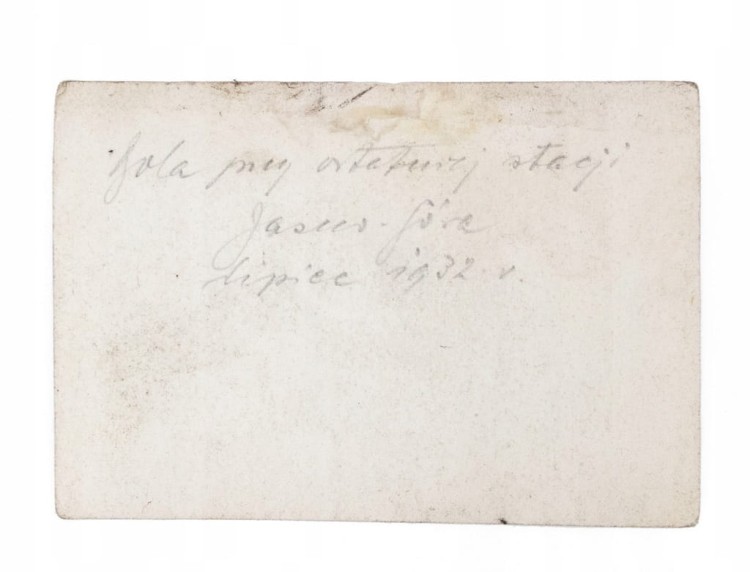 Jola przy ostatniej stacji
Jasno-Góra
lipiec 1932 r.